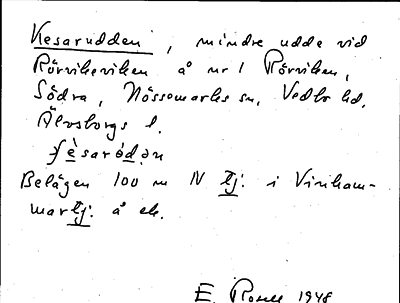 Kesarudden, mindre udde vid
Rörvikeviken å nr 1 Rörviken,
Södra, Nössemarks sn, Vedbo hd,
Älvsborgs l.
Belägen 100 m N tj. i Vinham-
martj. å ek.
E. 1948